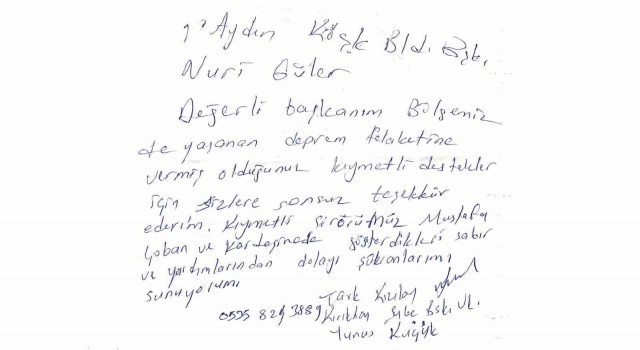 Aydın Köşk Bld. Bşk.
Nuri Güler
Değerli başkanım Bölgeniz
de yaşanan deprem felaketine
vermiş olduğunuz kıymetli destekler
için sizlere sonsuz teşekkür
ederim. Kıymetli şöförümüz Mustafa
Çoban ve Kardeşinede gösterdikleri sabır
ve yardımlarından dolayı şükranlarımı
sunuyorum
Türk Kızılay
0535 829 3889 Kırıkhan Şube Bşk. Vk.
Yunus Küçük